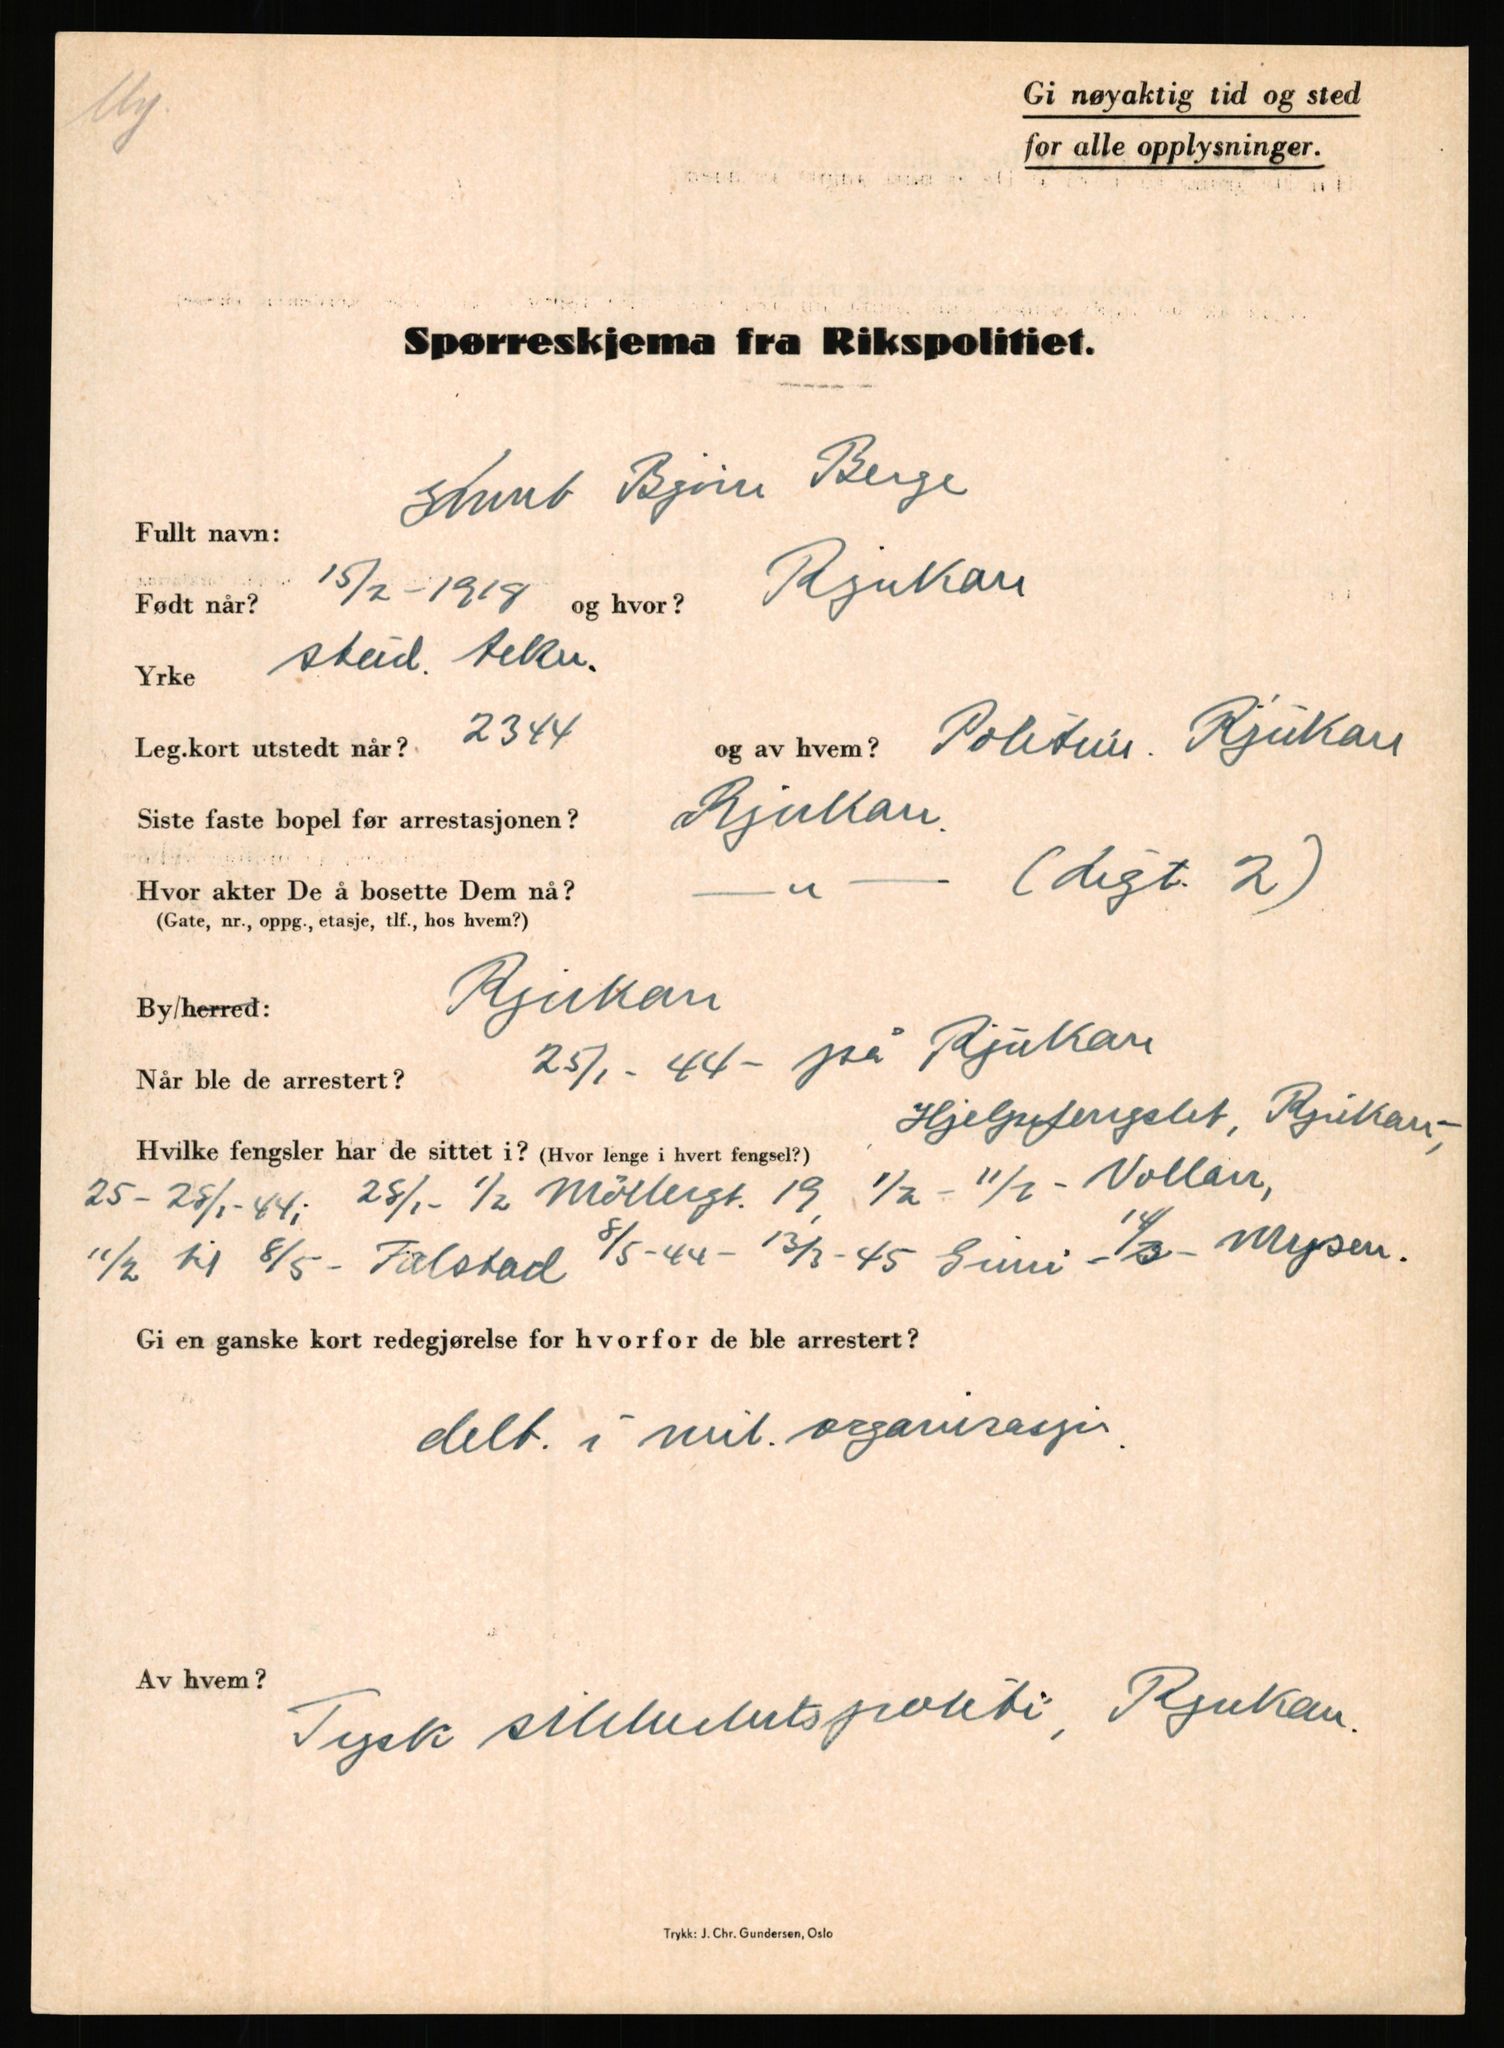 My.
Gi nøyaktig tid og sted
for alle opplysninger.
Spørreskjema fra Rikspolitiet.
Fullt navn: Knut Bjørn Berge
Født når? 15/2-1918 og hvor? Rjukan
Yrke stud. tekn.
Leg.kort utstedt når? 2344 og av hvem? Rjukan
Siste faste bopel før arrestasjonen? Rjukan.
Hvor akter De å bosette Dem nå? — " — ( 2)
(Gate, nr., oppg., etasje, tlf., hos hvem?)
By/herred: Rjukan
Når ble de arrestert? 25/1-44- på Rjukan
Hvilke fengsler har de sittet i? (Hvor lenge i hvert fengsel?) Hjelpefengslet, Rjukan-,
25-28/1-44; 28/1-1/2 Möllergt. 19, 1/2-11/2- Vollan,
11/2 til 8/5- Falstad 8/5-44-13/3-45 Grini - 14/3- Mysen.
Gi en ganske kort redegjørelse for hvorfor de ble arrestert?
delt. i mil. organisasjon.
Av hvem?
Tysk sikkerhetspoliti, Rjukan.
Trykk: J. Chr. Gundersen, Oslo